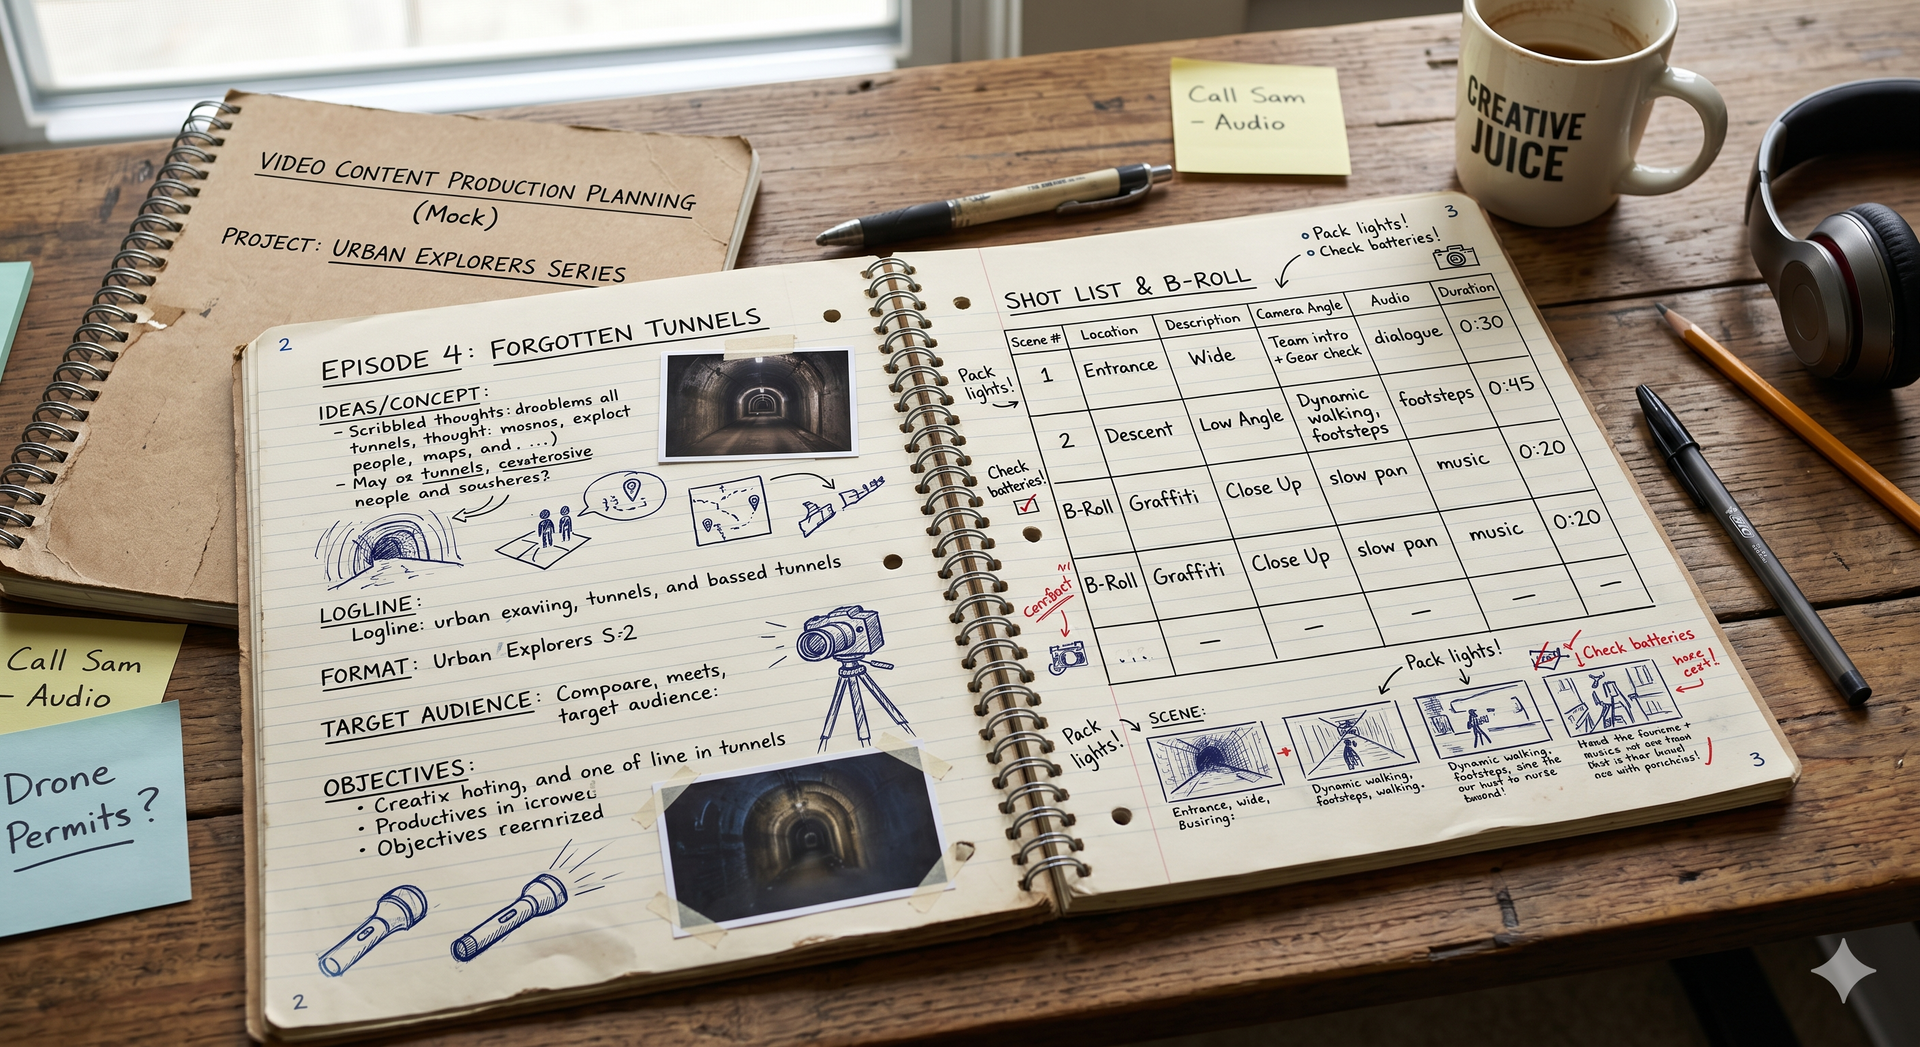 VIDEO CONTENT PRODUCTION PLANNING
(Mock)
PROJECT: URBAN EXPLORERS SERIES
Call Sam
- Audio
CREATIVE
JUICE
Call Sam
- Audio
Drone
Permits?
2
EPISODE 4: FORGOTTEN TUNNELS
IDEAS/CONCEPT:
- Scribbled thoughts: drooblems all
tunnels, thought: mosnos, exploct
people, maps, and. ...)
- May oz tunnels,
neople and sousheres?
LOGLINE:
Logline: urban exaviing, tunnels, and bassed tunnels
FORMAT: Urban Explorers S:2
TARGET AUDIENCE: Compoare, meets,
target audience:
OBJECTIVES:
• Creatix hoting, and one of line in tunnels
• Productives in icrowec
• Objectives reernrized
2
3
• Pack lights!
• Check batteries!
SHOT LIST & B-ROLL
Scene # Location Description Camera Angle Audio Duration
1 Entrance Wide Team intro + Gear check dialogue 0:30
2 Descent Low Angle Dynamic walking, footsteps footsteps 0:45
B-Roll Graffiti Close Up slow pan music 0:20
B-Roll Graffiti Close Up slow pan music 0:20
... — — — — —
Pack
lights!
Check
batteries!
Pack lights!
Check batteries
Pack
lights!
SCENE:
Entrance, wide,
Busiring:
Dynamic walking,
footsteps, walking.
Dynamic walking.
footsteps, sine the
our hust to nurse
3